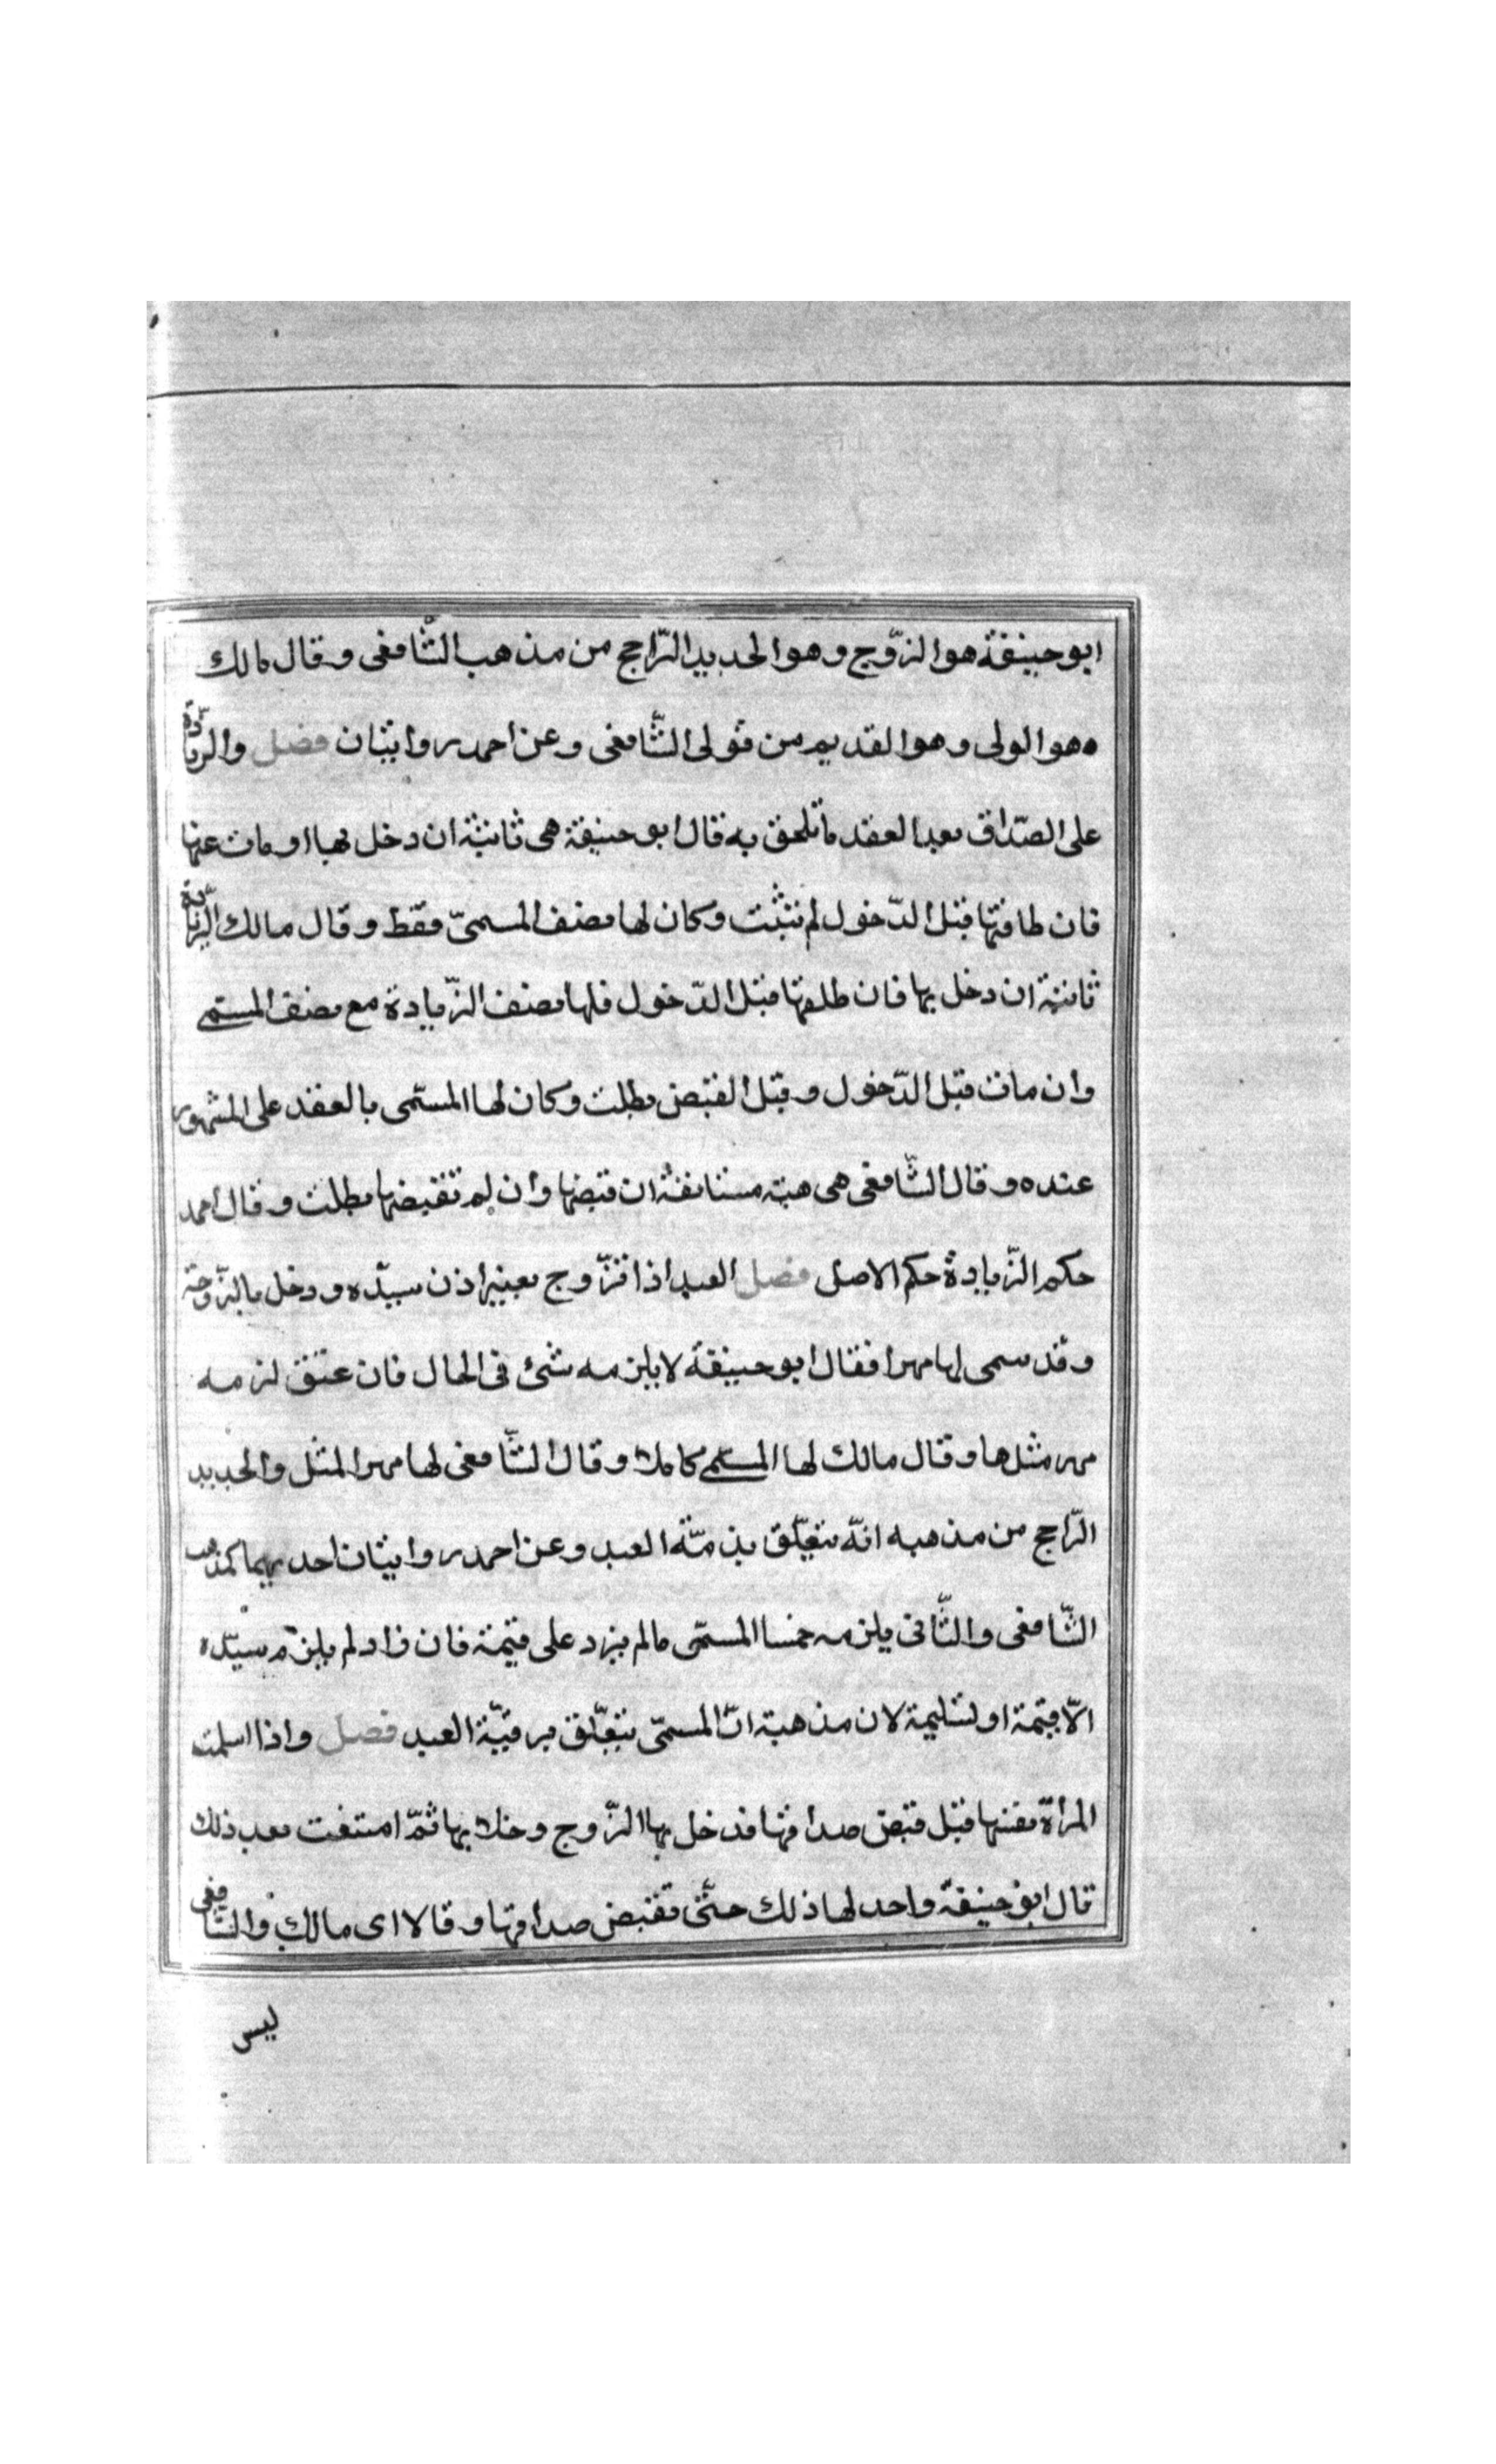 ابو حنيفة هو الزّوج وهو الجديد الرّاجح من مذهب الشّافعى وقال مالك
ه هو الولى وهو القديم من قولى الشّافعى وعن احمد روايتان فصل والزّيادة
على الصّداق بعد العقد ما تلحق به قال ابو حنيفة هى ثابتة ان دخل بها او مات عنها
فان طلقتها قبل الدّخول لم تثبت وكان لها نصف المسمىّ فقط وقال مالك الزّيادة
ثابتة ان دخل بها فان طلقها قبل الدّخول فلها نصف الزّيادة مع نصف المسمى
وان مات قبل الدّخول وقبل القبض بطلت وكان لها المسمّى بالعقد على المشهور
عنده وقال الشّافعى هى هبة مستانفة ان قبضها وان لم تقبضها بطلت وقال احمد
حكم الزّيادة حكم الاصل فصل العبد اذا تزّوج بغير اذن سيّده ودخل بالزّوجة
وقد سمى لها مهرا فقال ابو حنيفة لا يلزمه شئ فى الحال فان عتق لزمه
مهر مثلها وقال مالك لها المسمى كاملا وقال الشّافعى لها مهر المثل والجديد
الرّاجح من مذهبه انّه يتعلّق بذمّة العبد وعن احمد روايتان احديهما كمذهب
الشّافعى والثّانى يلزمه خمسا المسمّى ما لم يزد على قيمته فان زاد لم يلزم سيّده
الاّ قيمة او لتسليمة لان مذهبة انّ المسمّى يتعلّق برقبّة العبد فصل واذا اسلمت
المراة نفسها قبل قبض صداقها فدخل بها الزّوج وخلا بها ثمّ امتنعت بعد ذلك
قال ابو حنيفة واحد لها ذلك حتّى تقبض صداقها وقالا اى مالك والشّافعى
ليس